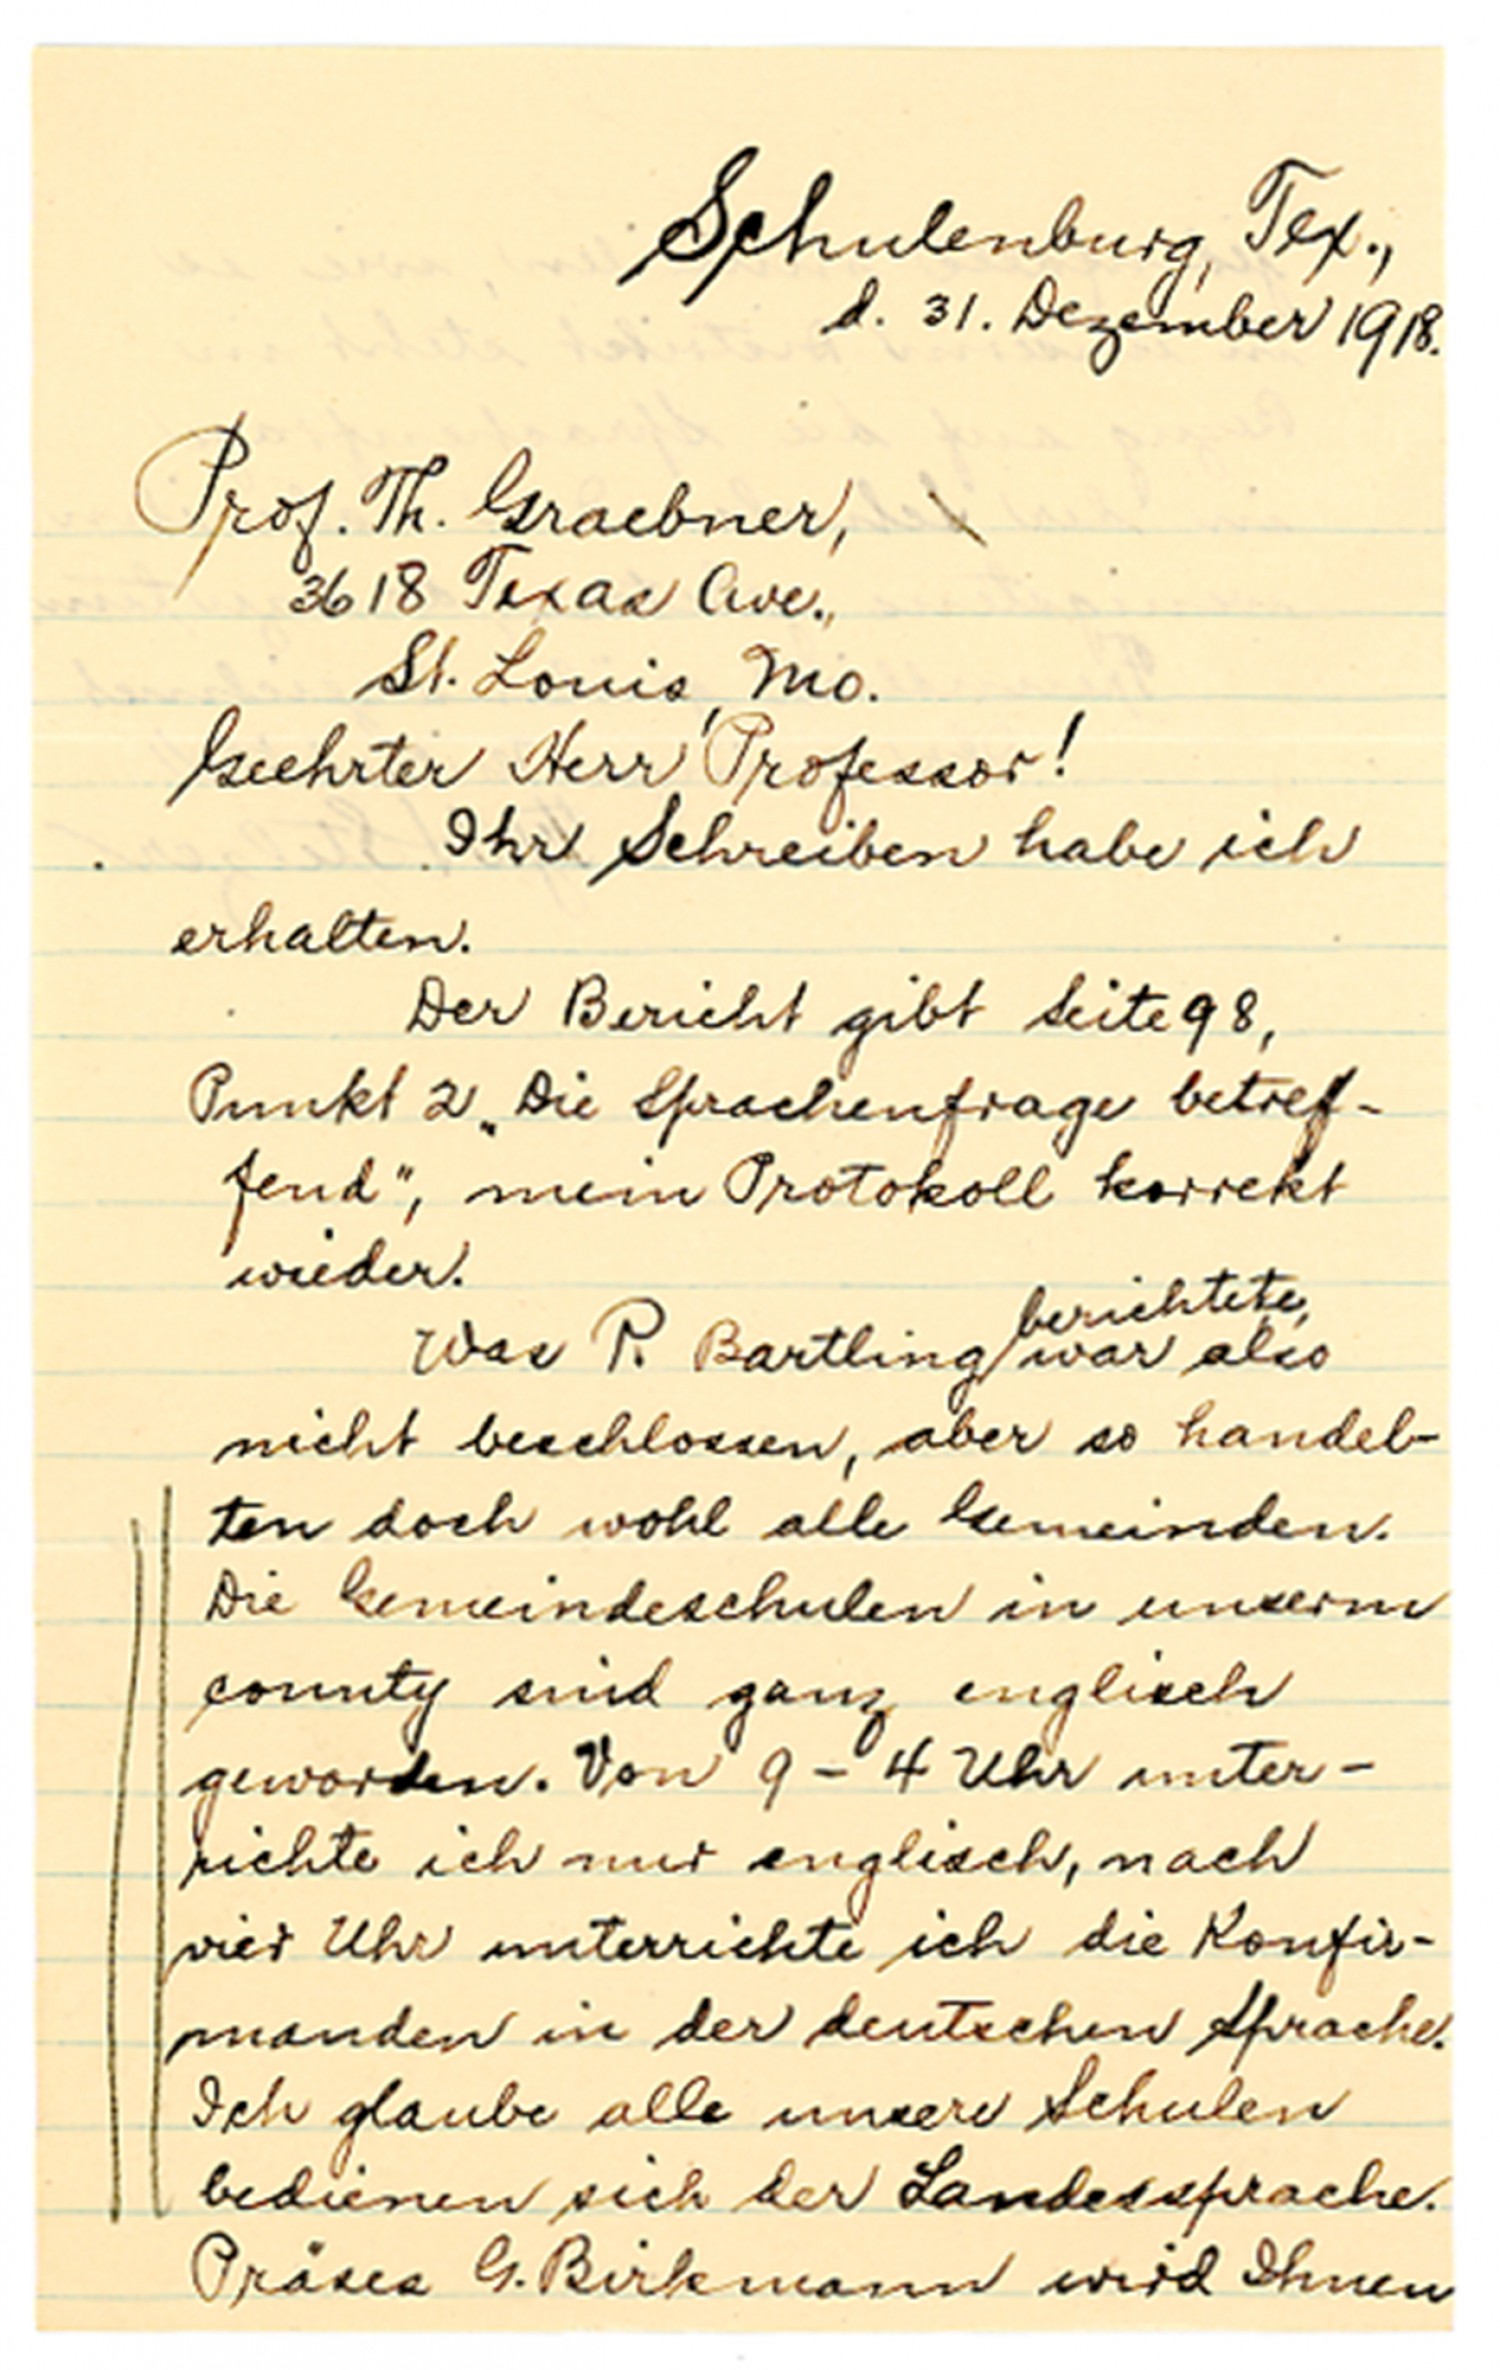 Schulenburg, Tex.,
d. 31. Dezember 1918.
Prof. Th. Graebner,
3618 Texas Ave.,
St. Louis, Mo.
Geehrter Herr Professor!
Ihr Schreiben habe ich
erhalten.
Der Bericht gibt Seite 98,
Punkt 2 „Die Sprachenfrage betref-
fend", mein Protokoll korrekt
wieder.
berichtete,
Was P. Bartling war also
nicht beschlossen, aber so handel-
ten doch wohl alle Gemeinden.
Die Gemeindeschulen in unserm
county sind ganz englisch
geworden. Von 9 - 4 Uhr unter-
richte ich nur englisch, nach
vier Uhr unterrichte ich die Konfir-
manden in der deutschen Sprache.
Ich glaube alle unsere Schulen
bedienen sich der Landessprache.
Präses G. Birkmann wird Ihnen